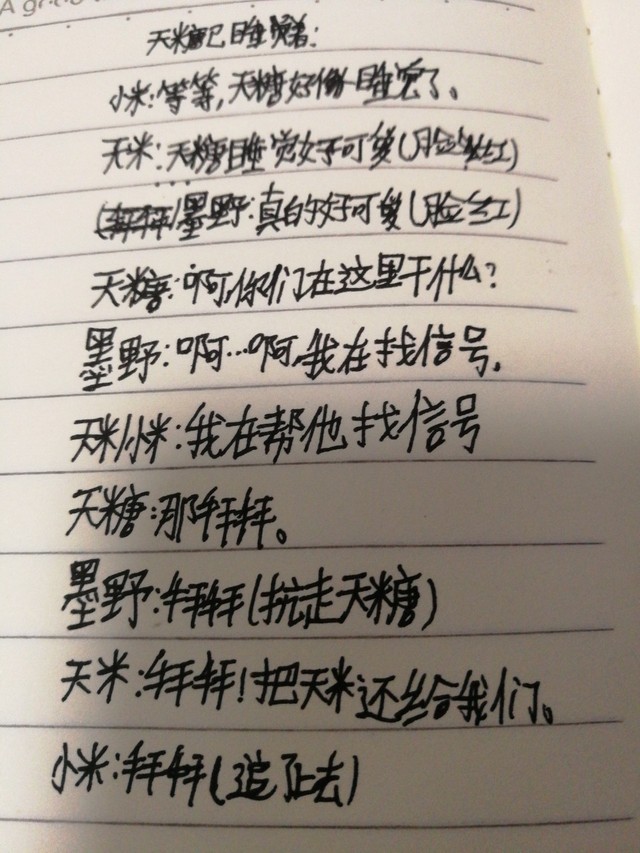 A g
天糖已睡着:
小米:等等,天糖好像睡觉了。
天米:天糖睡觉好可爱(脸红)
墨野:真的好可爱(脸红)
天糖:啊,你们在这里干什么?
墨野:啊…啊,我在找信号.
天米/小米:我在帮他找信号
天糖:那拜拜。
墨野:拜拜(抗走天糖)
天米:拜拜!把天米还给我们。
小米:拜拜(追了上去)